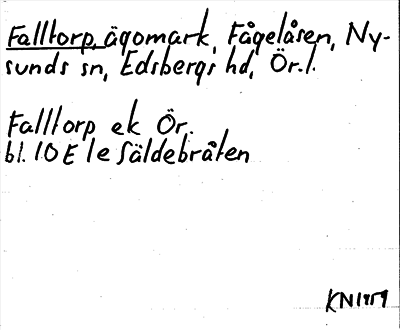 Falltorp, ägomark, Fågelåsen, Ny-
sunds sn, Edsbergs hd, Ör. l.
Falltorp ek Ör.
bl. 10 E 1 e Säldebråten